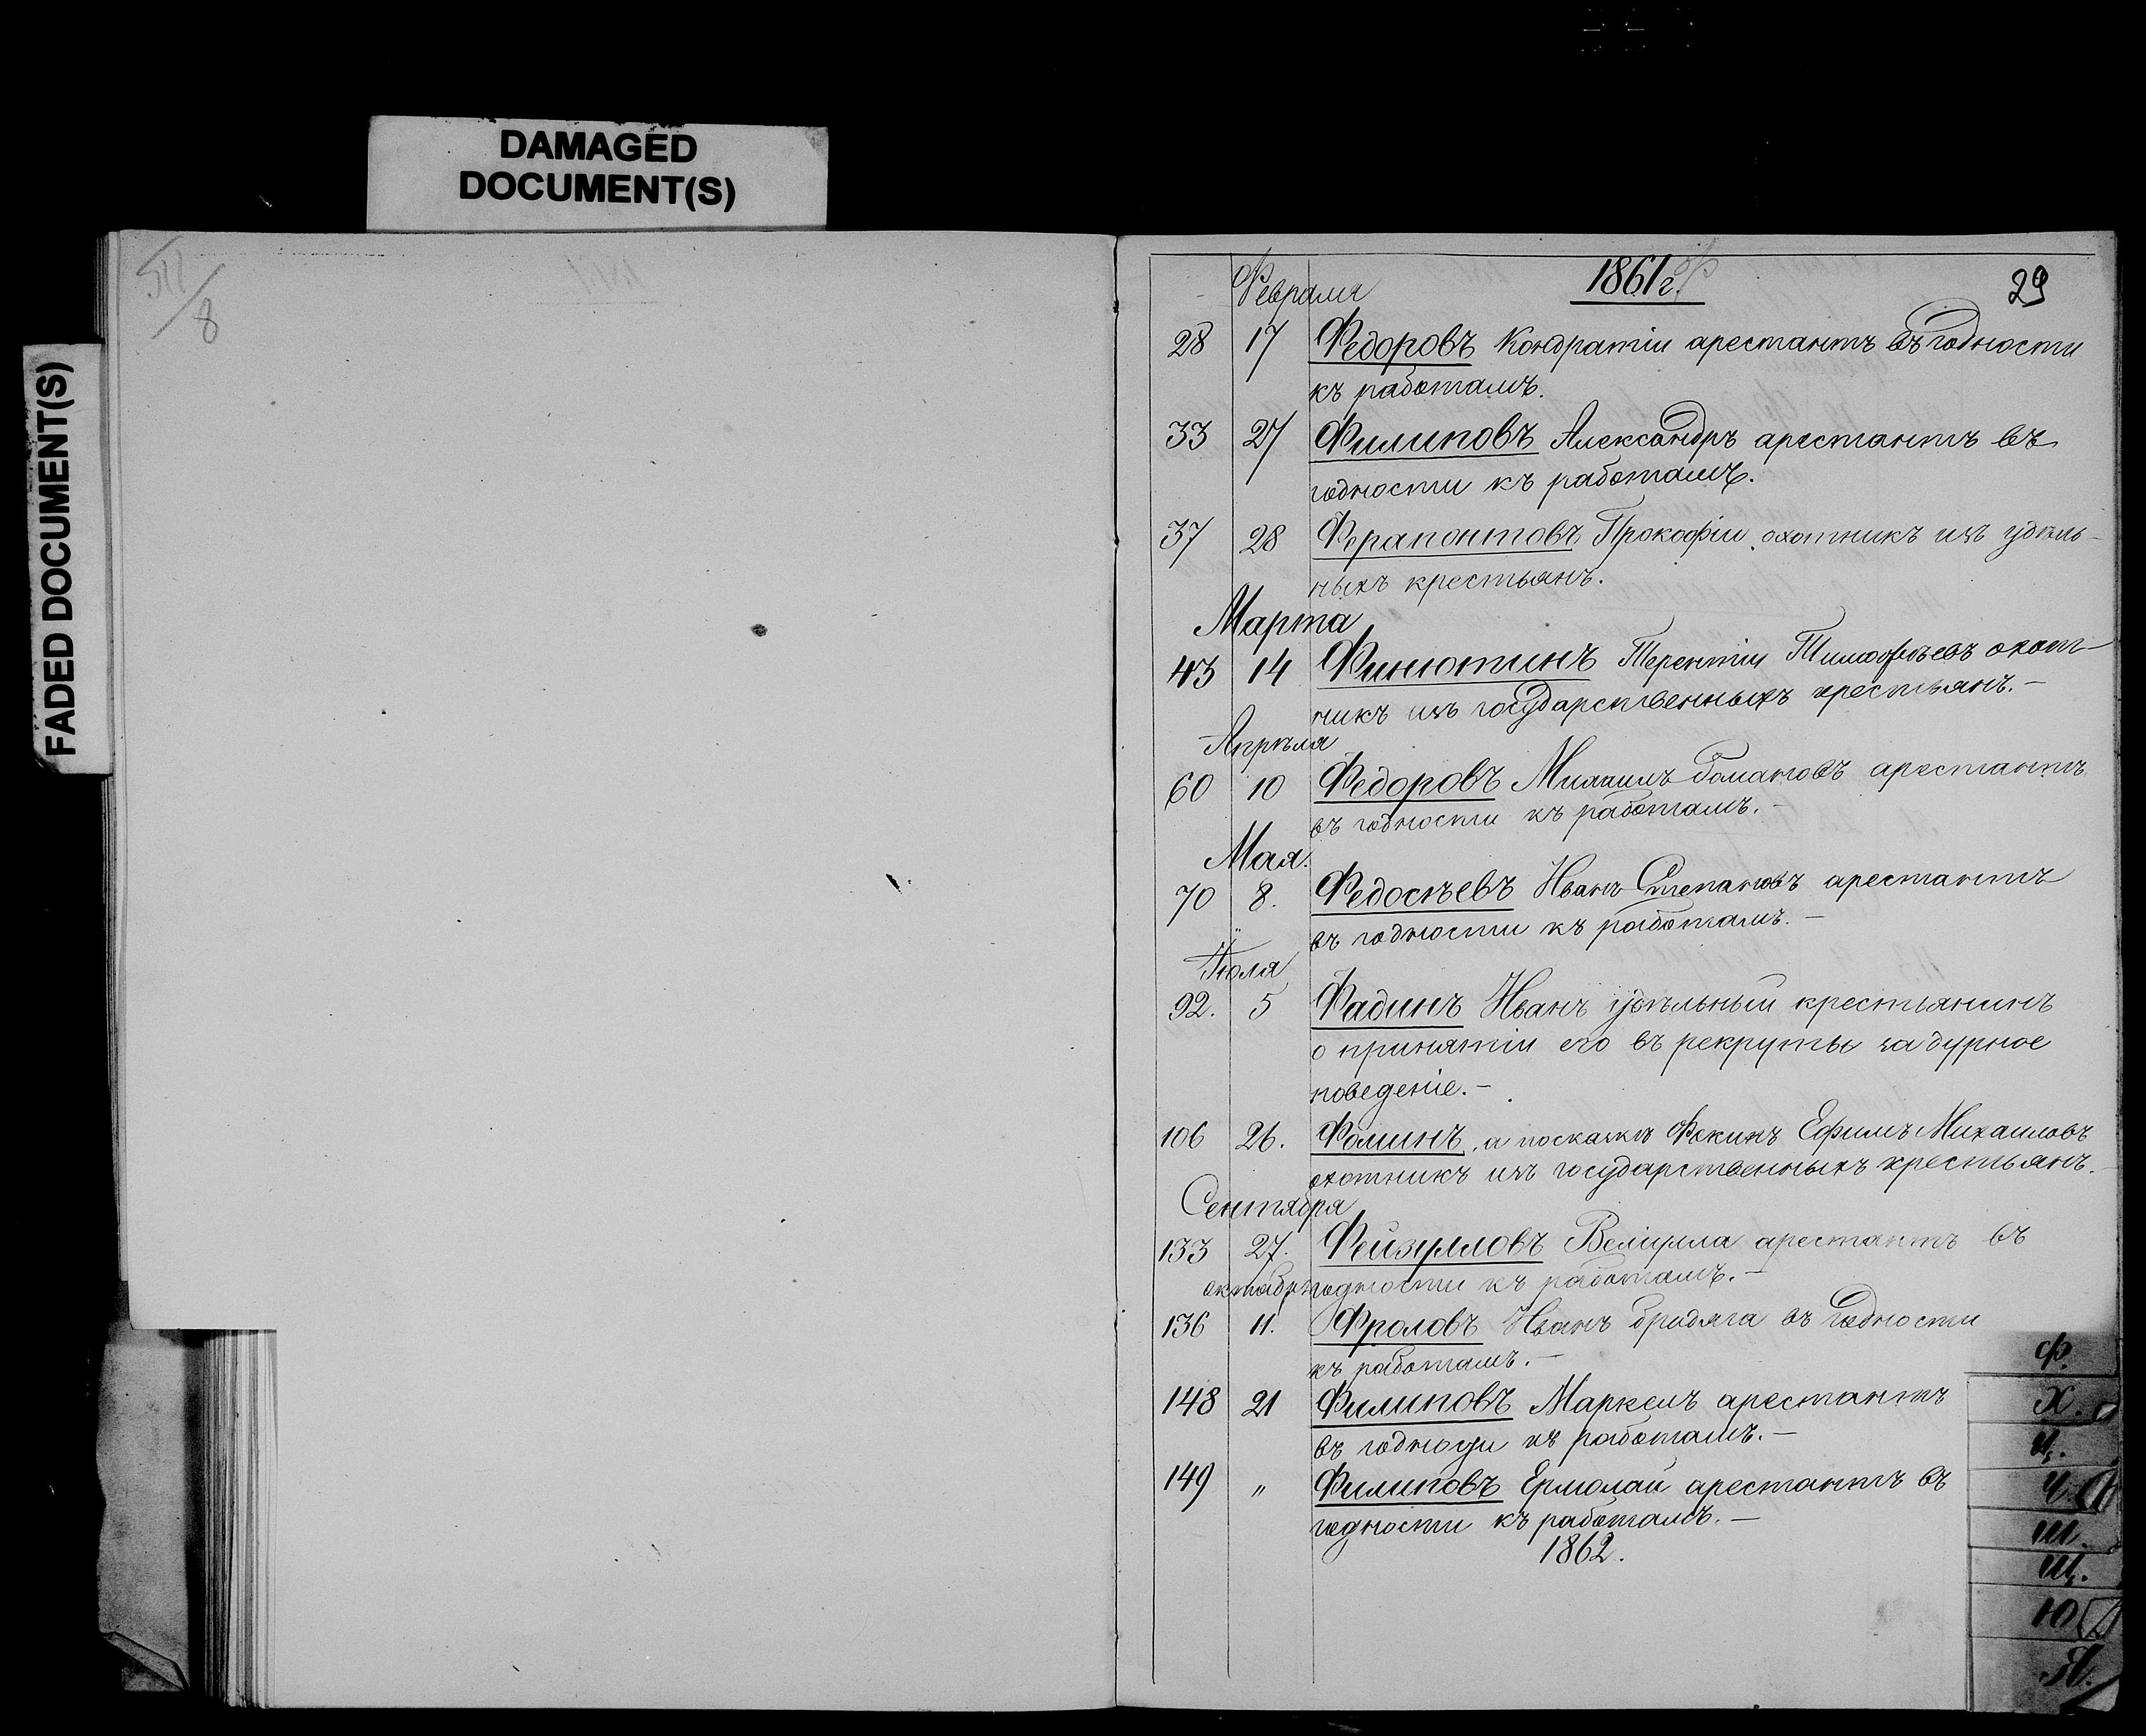 DAMAGED
DOCUMENT(S)
FADED DOCUMENT(S)
8
1861 г.
29
Февраля
28 17 Федоровъ Кондратiи арестантъ въ годности
къ работамъ.
33 27 Филиповъ Александръ арестантъ въ
годности къ работамъ.
37 28 Ферапонтовъ Прокофiи охотникъ изъ удѣль-
ныхъ крестьянъ.
Марта
43 14 Финютинъ Терентiи Тимофѣевъ охот-
никъ изъ государственныхъ крестьянъ.-
Апрѣля
60 10 Федоровъ Михаилъ арестантъ
въ годности къ работамъ.-
Мая.
70 8. Федосѣевъ Иванъ Степановъ арестантъ
въ годности къ работамъ.-
Iюля
92. 5 Фадинъ Иванъ удѣльный крестьянинъ
о принятiи его въ рекруты за дурное
поведенiе.-
106 26. Фоминъ, а по сказкѣ Фокинъ Ефимъ Михаиловъ
охотникъ изъ государственныхъ крестьянъ.
Сентября
133 27. Фейзулловъ Велiулла арестантъ въ
годности къ работамъ.-
октября
136 11. Фроловъ Иванъ бродяга въ годности
къ работамъ.-
148 21 Филиповъ Маркелъ арестантъ
въ къ работамъ.-
149 " Филиповъ Ермолай арестантъ въ
годности къ работамъ.-
1862.
Ф.
Х.
Ц.
Ч.
Ш.
Щ.
Ю
Я.